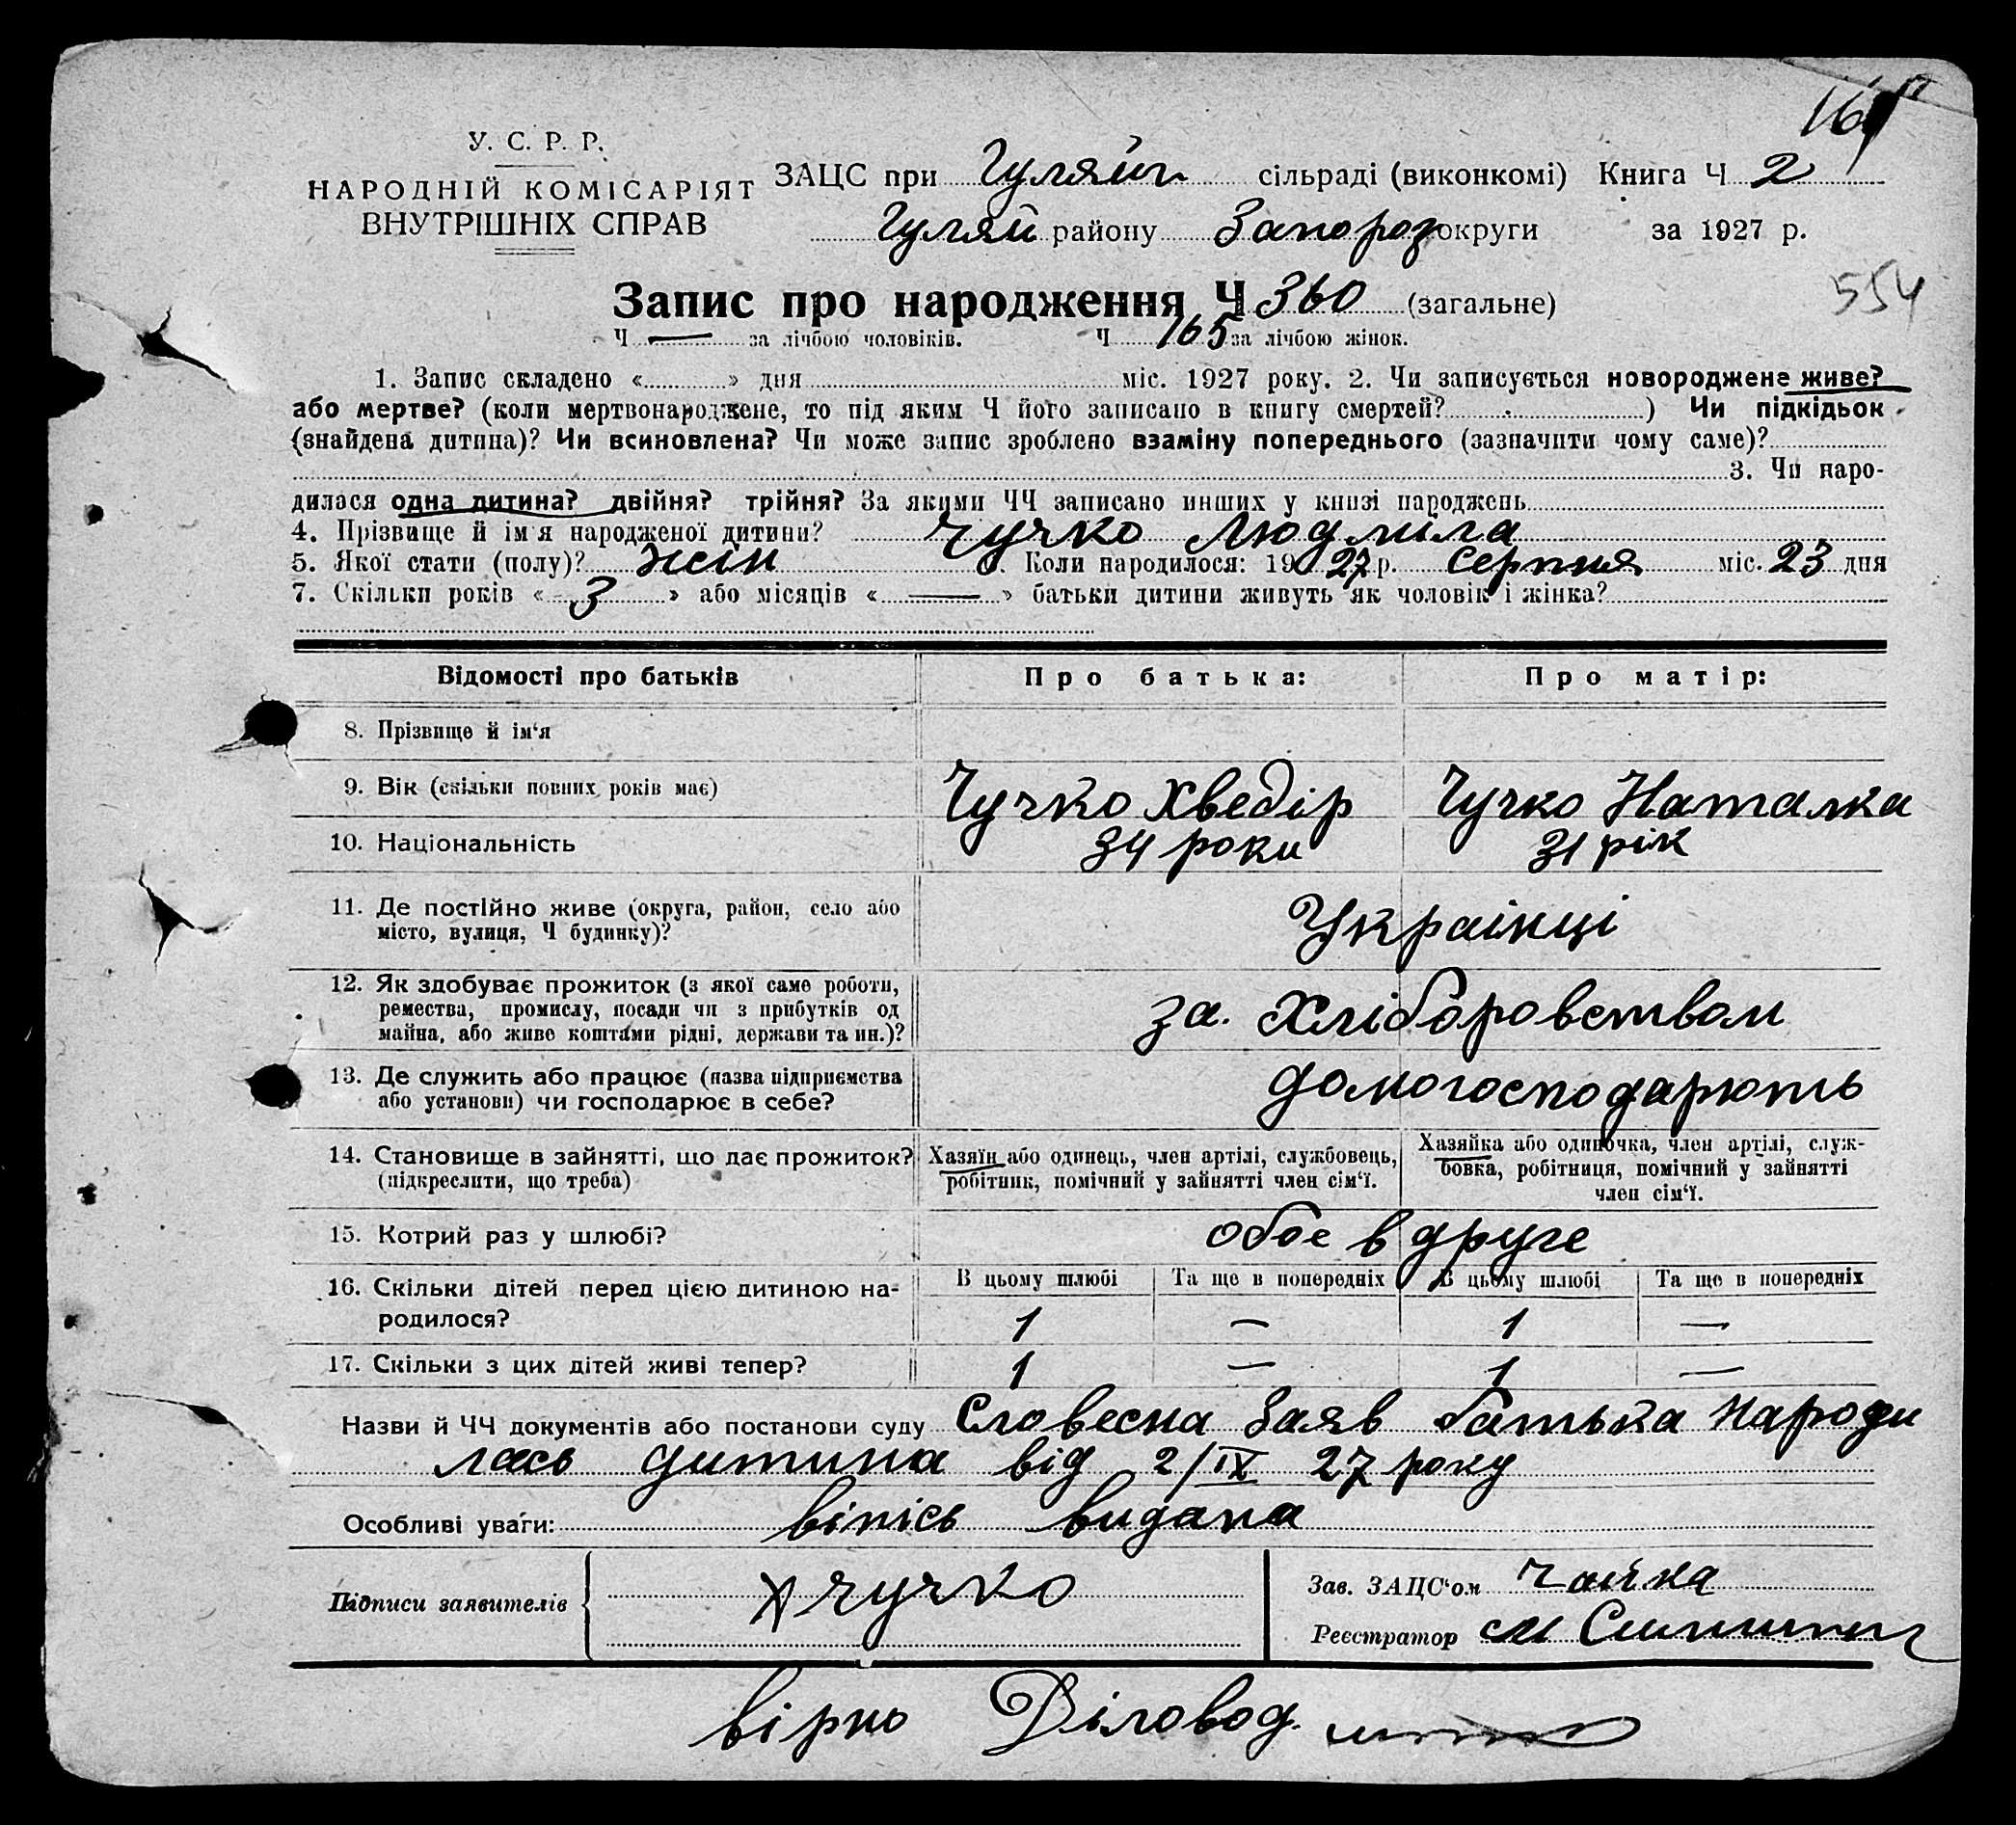 У. С. Р. Р.
НАРОДНІЙ КОМІСАРІЯТ
ВНУТРІШНІХ СПРАВ
ЗАЦС при Гуляйп сільраді (виконкомі) Книга Ч 2
Гуляй району Запороз округи за 1927 р.
554
Запис про народження Ч 360 (загальне)
Ч — за лічбою чоловіків. Ч 165 за лічбою жінок.
1. Запис складено «» дня міс. 1927 року. 2. Чи записується новороджене живе?
або мертве? (коли мертвонароджене, то під яким Ч його записано в книгу смертей?) Чи підкідьок
(знайдена дитина)? Чи всиновлена? Чи може запис зроблено взаміну попереднього (зазначити чому саме)?
3. Чи наро-
дилася одна дитина? двійня? трійня? За якими ЧЧ записано инших у книзі народжень
4. Прізвище й ім'я народженої дитини? Чучко Людміла
5. Якої стати (полу)? жін 6. Коли народилося: 1927 р. Серпня міс. 23 дня
7. Скільки років « 3 » або місяців « — » батьки дитини живуть як чоловік і жінка?
Відомості про батьків Про батька: Про матір:
8. Прізвище й ім'я
9. Вік (скільки повних років має) Чучко Хведір Чучко Наталка
10. Національність 34 роки 31 рік
11. Де постійно живе (округа, район, село або
місто, вулиця, Ч будинку)? Українці
12. Як здобуває прожиток (з якої саме роботи,
ремества, промислу, посади чи з прибутків од
майна, або живе коштами рідні, держави та ин.)? за. Хліборовством
13. Де служить або працює (назва підприємства
або установи) чи господарює в себе? домогосподарють
14. Становище в зайнятті, що дає прожиток?
(підкреслити, що треба)
Хазяїн або одинець, член артілі, службовець,
робітник, помічний у зайнятті член сім'ї.
Хазяйка або одиночка, член артілі, служ-
бовка, робітниця, помічний у зайнятті
член сім'ї.
15. Котрий раз у шлюбі? обоє в друге
16. Скільки дітей перед цією дитиною на-
родилося?
В цьому шлюбі Та ще в попередніх В цьому шлюбі Та ще в попередніх
1 — 1 —
17. Скільки з цих дітей живі тепер? 1 — 1 —
Назви й ЧЧ документів або постанови суду Словесна Заяв батька Народи
лась дитина від 2/IX 27 року
Особливі уваги: віпісь видана
Підписи заявителів Чучко
Зав. ЗАЦС'ом Чайка
Реєстратор
вірно Діловод.